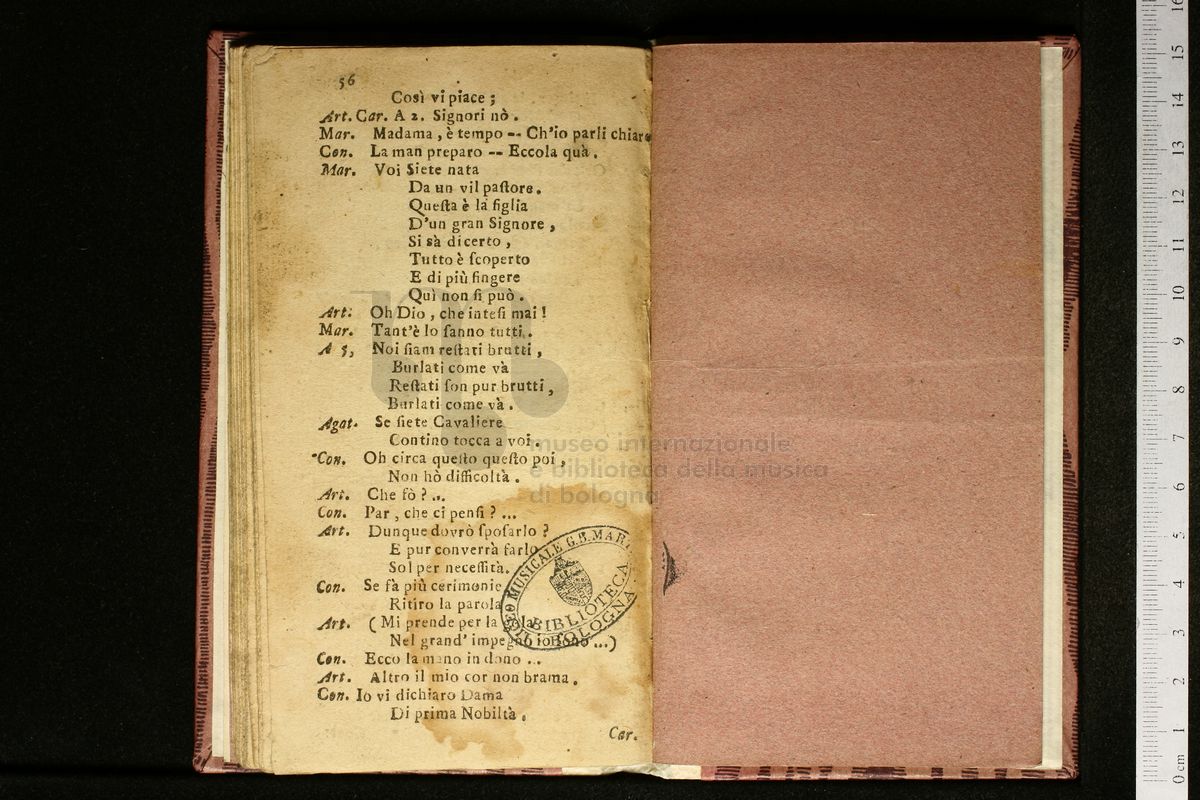 56
Così vi piace ;
Art. Car. A 2. Signori nò .
Mar. Madama , è tempo -- Ch'io parli chiaro
Con. La man preparo -- Eccola quà .
Mar. Voi Siete nata
Da un vil paſtore.
Queſta è la figlia
D'un gran Signore ,
Si sà di certo ,
Tutto è ſcoperto
E di più fingere
Quì non ſi può .
Art. Oh Dio , che inteſi mai !
Mar. Tant'è lo ſanno tutti .
A 5, Noi ſiam reſtati brutti ,
Burlati come và
Reſtati ſon pur brutti ,
Burlati come và .
Agat. Se ſiete Cavaliere
Contino tocca a voi .
Con. Oh circa queſto queſto poi ,
Non hò difficoltà .
Art. Che fò ? ...
Con. Par , che ci penſi ? ...
Art. Dunque dovrò ſpoſarlo ?
E pur converrà farlo
Sol per neceſſità.
Con. Se fà più cerimonie
Ritiro la parola
Art. ( Mi prende per la gola
Nel grand' impegno io ſono ...)
Con. Ecco la mano in dono ...
Art. Altro il mio cor non brama .
Con. Io vi dichiaro Dama
Di prima Nobiltà .
Car.
MUSICALE G.B. MAR
BIBLIOTECA
BOLOGNA
museo internazionale
e biblioteca della musica
di bologna
0 cm 1 2 3 4 5 6 7 8 9 10 11 12 13 14 15 16